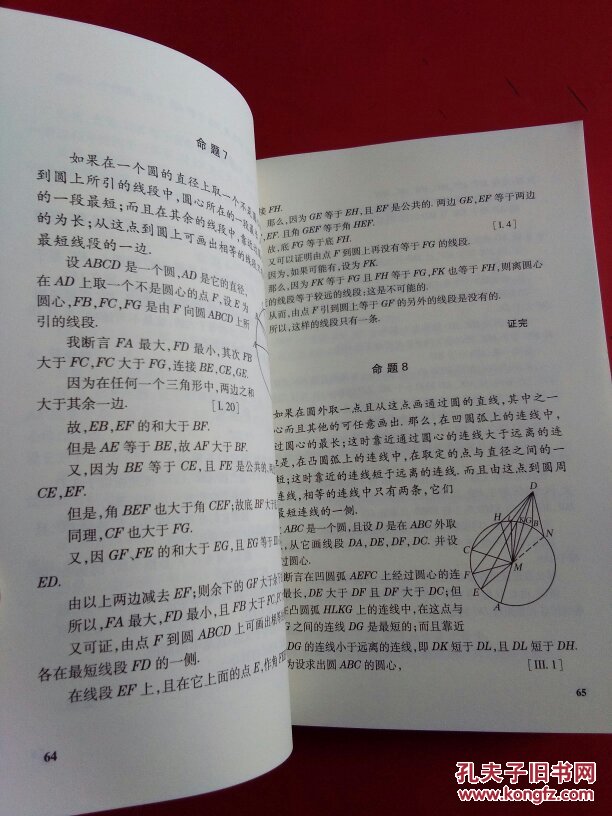 命题7
如果在一个圆的直径上取一个不是圆
到圆上所引的线段中,圆心所在的一线
的一段最短;而且在其余的线段中,靠近
的为长;从这点到圆上可画出相等的线段
最短线段的一边.
设ABCD是一个圆,AD是它的直径,
在AD上取一个不是圆心的点F,设E为
圆心,FB,FC,FG是由F向圆ABCD上所
引的线段.
我断言FA最大,FD最小,其次FB
大于FC,FC大于FG,连接BE,CE,GE.
因为在任何一个三角形中,两边之和
大于其余一边. [I.20]
故,EB,EF的和大于BF.
但是AE等于BE,故AF大于BF.
又,因为BE等于CE,且FE是公共的,
CE,EF.
但是,角BEF也大于角CEF;故底BF大于
同理,CF也大于FG.
又,因GF、FE的和大于EG,且EG等于
ED.
由以上两边减去EF;则余下的GF大于余
所以,FA最大,FD最小,且FB大于FC,
又可证,由点F到圆ABCD上可画出相等
各在最短线段FD的一侧.
在线段EF上,且在它上面的点E,作角
64
接FH.
那么,因为GE等于EH,且EF是公共的.两边GE,EF等于两边
,EF.且角GEF等于角HEF.
故,底FG等于底FH. [I.4]
又可以证明由点F到圆上再没有等于FG的线段.
因为,如果可能有,设为FK.
那么,因为FK等于FG且FH等于FG,FK也等于FH,则离圆心
的线段等于较远的线段;这是不可能的.
从而,由点F引到圆上等于GF的另外的线段是没有的.
所以,这样的线段只有一条.
证完
命题8
如果在圆外取一点且从这点画通过圆的直线,其中之一
心而且其他的可任意画出.那么,在凹圆弧上的连线中,
过圆心的最长;这时靠近通过圆心的连线大于远离的连
是,在凸圆弧上的连线中,在取定的点与直径之间的一
短;这时靠近的连线短于远离的连线.而且由这点到圆周
连线,相等的连线中只有两条,它们
最短连线的一侧.
ABC是一个圆,且设D是在ABC外取
,从它画线段DA,DE,DF,DC.并设
过圆心.
断言在凹圆弧AEFC上经过圆心的连
最长,DE大于DF且DF大于DC;但
凸圆弧HLKG上的连线中,在这点与
G之间的连线DG是最短的;而且靠近
DG的连线小于远离的连线,即DK短于DL,且DL短于DH.
为设求出圆ABC的圆心, [III.1]
D
H
G
B
N
C
M
F
E
A
65
孔夫子旧书网
www.kongfz.com